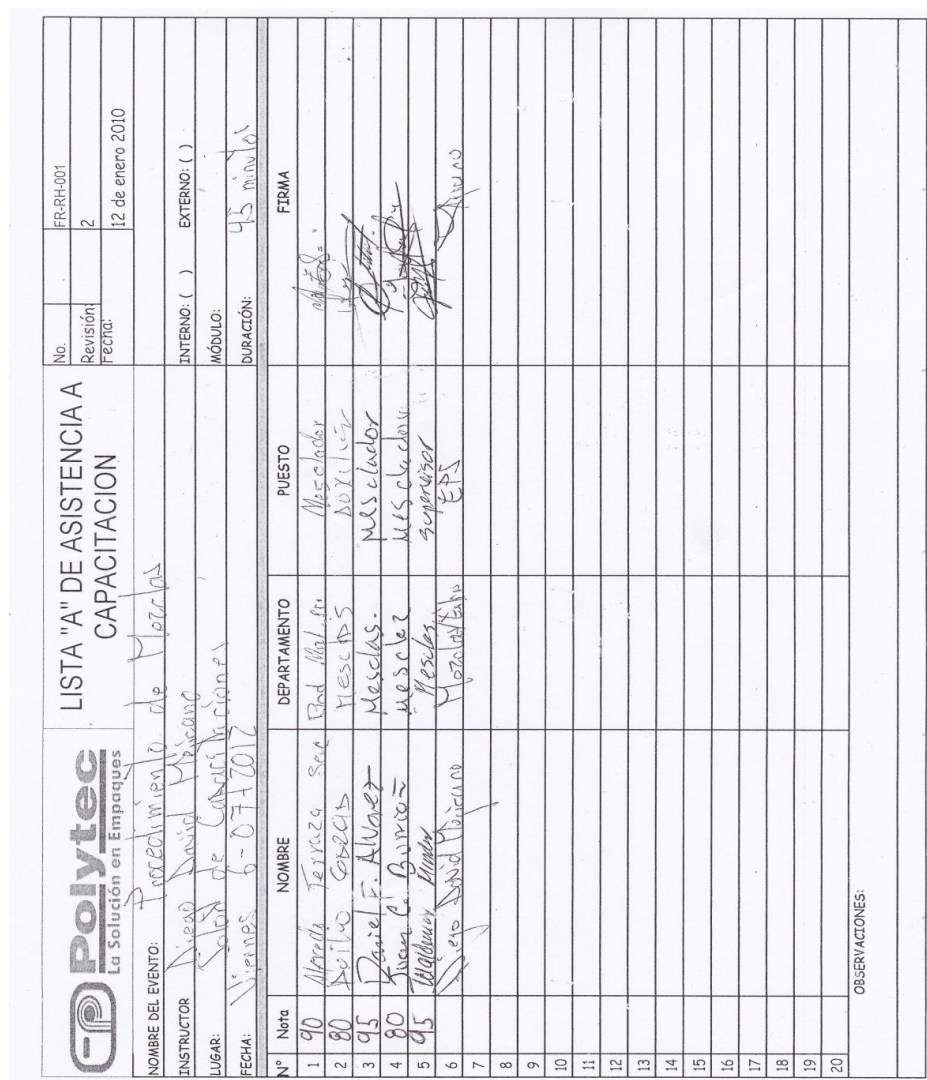 Polytec
La Solución en Empaques
LISTA "A" DE ASISTENCIA A
CAPACITACION
No. FR-RH-001
Revisión: 2
Fecha: 12 de enero 2010
NOMBRE DEL EVENTO: Procedimiento de Mezclas
INSTRUCTOR Diego David Moicano
INTERNO: ( ) EXTERNO: ( )
LUGAR: Salon de Capacitaciones
MÓDULO:
FECHA: Viernes 6-07-2012
DURACIÓN: 45 minutos
N° Nota NOMBRE DEPARTAMENTO PUESTO FIRMA
1 90 Terraza Mesclador
2 80 Mesclas Auxiliar
3 95 Daniel F. Alvarez Mesclas. Mesclador
4 80 Juan C. Mesclador
5 95 Waldemar Mesclas supervisor
6 Diego David EPS
7
8
9
10
11
12
13
14
15
16
17
18
19
20
OBSERVACIONES: